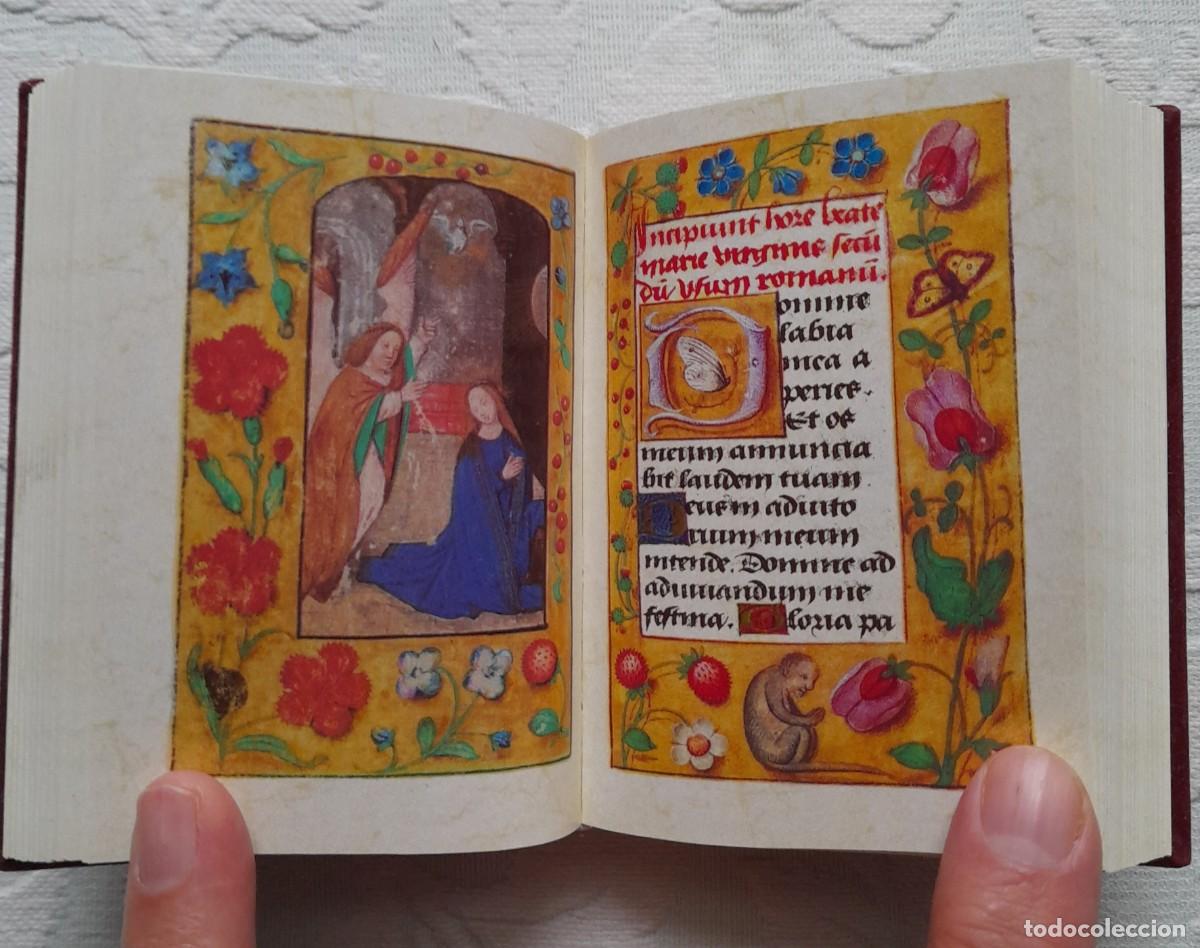 Incipiunt hore beate
marie virginis secū
dū usum romanū.
Domine
labia
mea a
peries.
Et os
meum annuncia
bit laudem tuam
Deus in adiuto
rium meum
intende. Domine ad
adiuuandum me
festina. Gloria pa
todocoleccion